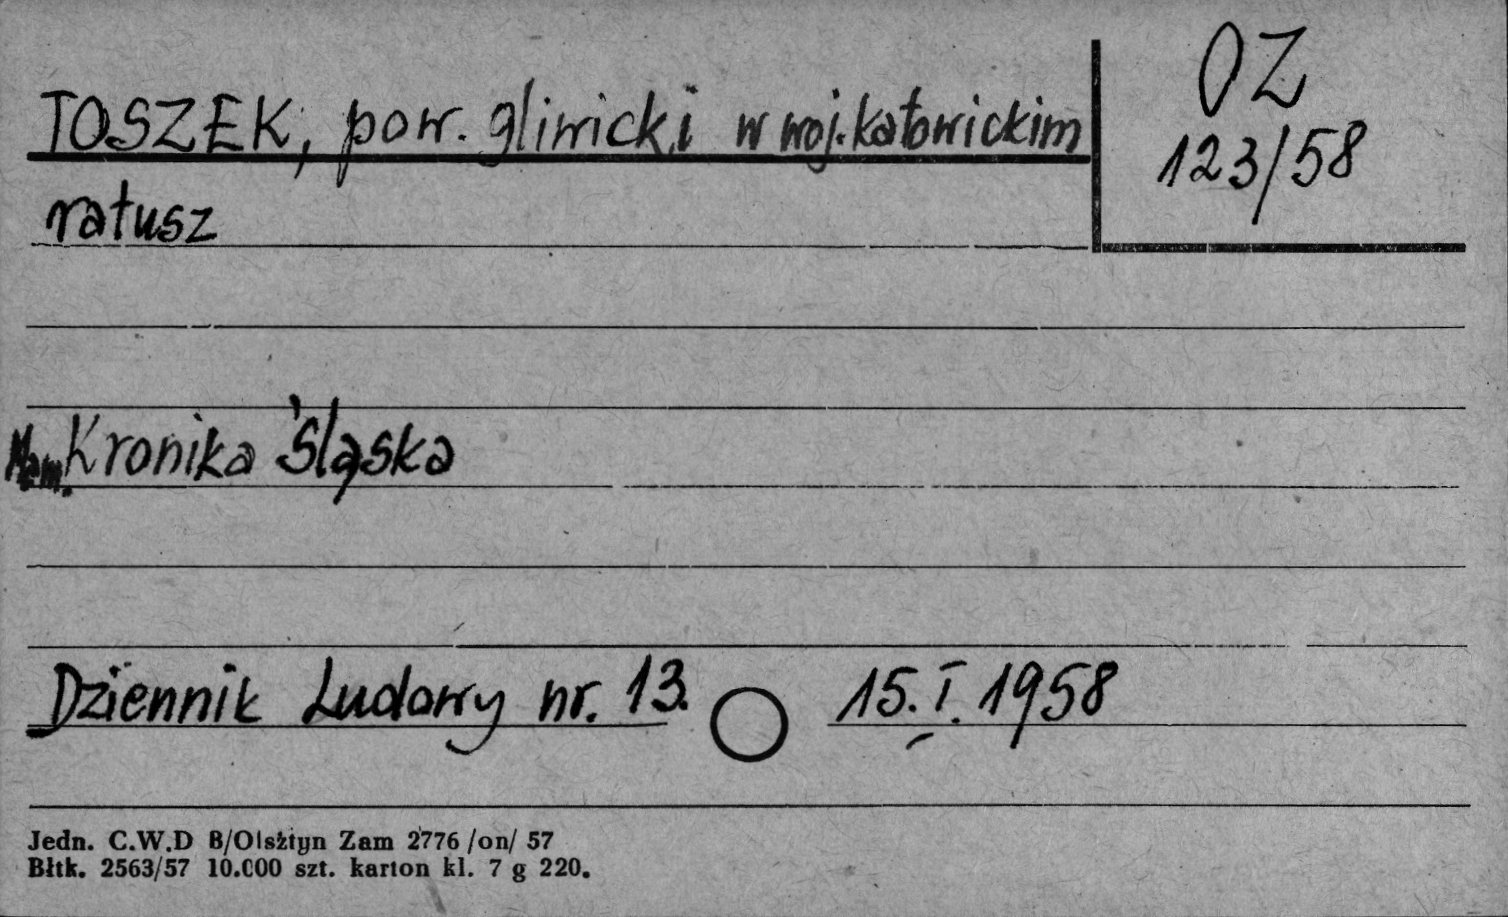 TOSZEK, pow. gliwicki w woj. katowickim
OZ
123/58
ratusz
Kronika Śląska
Dziennik Ludowy nr. 13. 15. I. 1958
Jedn. C.W.D B/Olsztyn Zam 2776 /on/ 57
Błtk. 2563/57 10.000 szt. karton kl. 7 g 220.